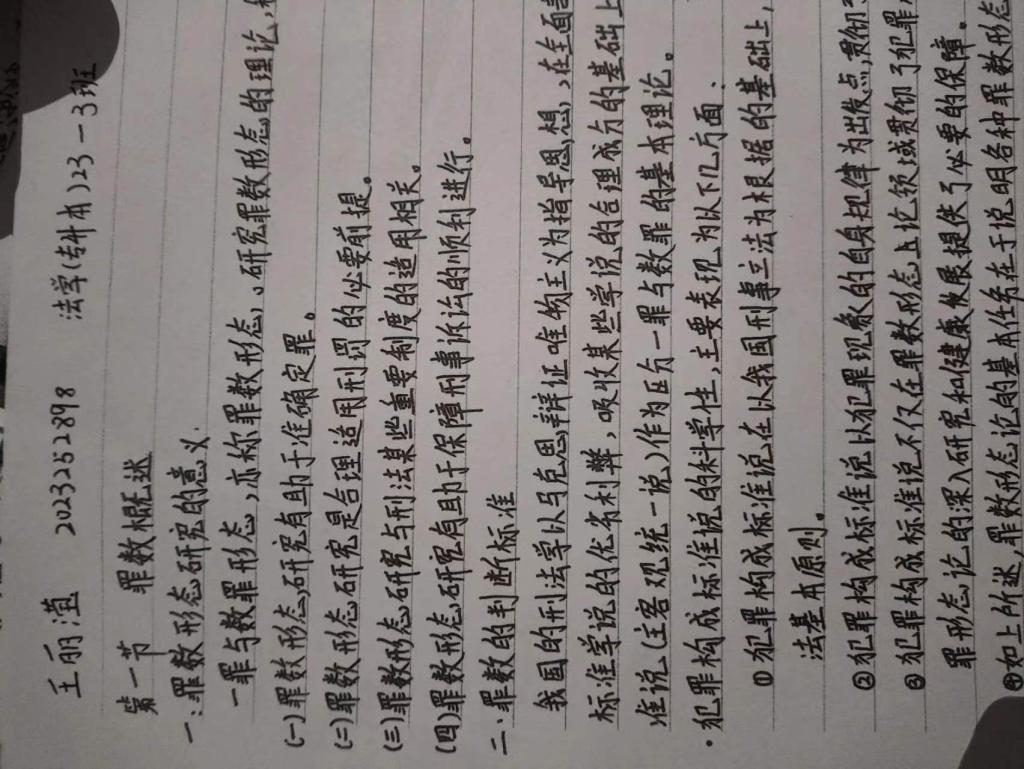 王丽 2023252898 法学(专升本)23-3班
第一节 罪数概述
一:罪数形态研究的意义.
一罪与数罪形态,亦称罪数形态,研究罪数形态的理论,
(一)罪数形态研究有助于准确定罪。
(二)罪数形态研究是合理适用刑罚的必要前提。
(三)罪数形态研究与刑法某些重要制度的适用相关。
(四)罪数形态研究有助于保障刑事诉讼的顺利进行。
二、罪数的判断标准
我国的刑法学以马克思辩证唯物主义为指导思想,在全面
标准学说的优劣利弊,吸收某些学说的合理成分的基础上
准说(主客观统一说)作为区分一罪与数罪的基本理论。
·犯罪构成标准说的科学性,主要表现为以下几方面:
①犯罪构成标准说在以我国刑事立法为根据的基础上,
法基本原则。
②犯罪构成标准说以犯罪现象的自身规律为出发点,贯彻
③犯罪构成标准说不仅在罪数形态上论领域贯彻了犯罪
罪形态论的深入研究和健康发展提供了必要的保障。
④如上所述,罪数形态论的基本任务在于说明各种罪数形态